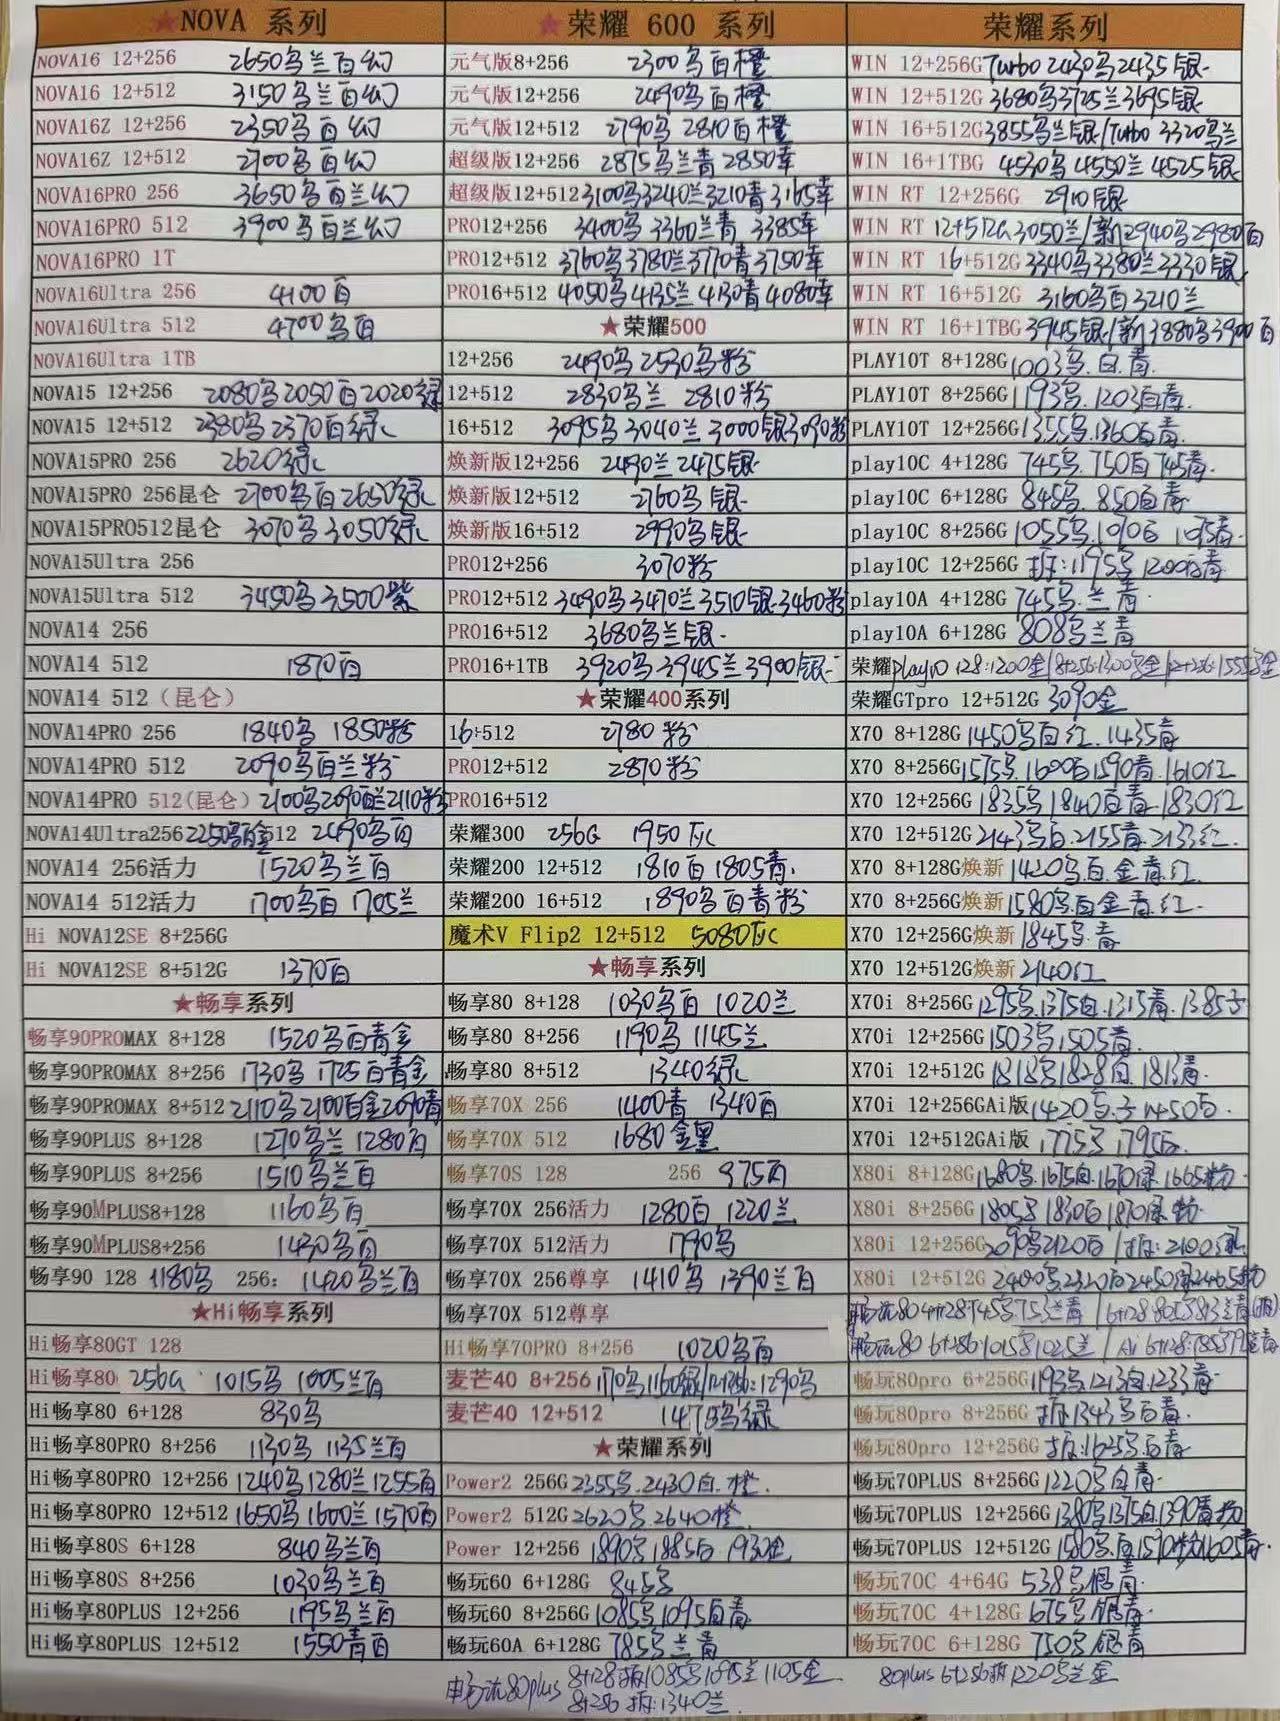 ★NOVA 系列
NOVA16 12+256 2650乌兰百幻
NOVA16 12+512 3150乌兰百幻
NOVA16Z 12+256 2350乌百幻
NOVA16Z 12+512 2700乌百幻
NOVA16PRO 256 3650乌百兰幻
NOVA16PRO 512 3900乌百兰幻
NOVA16PRO 1T
NOVA16Ultra 256 4100百
NOVA16Ultra 512 4700乌百
NOVA16Ultra 1TB
NOVA15 12+256 2080乌2050百2020绿
NOVA15 12+512 2380乌2370百绿
NOVA15PRO 256 2620绿
NOVA15PRO 256昆仑 2700乌百2650绿
NOVA15PRO512昆仑 3070乌3050绿
NOVA15Ultra 256
NOVA15Ultra 512 3450乌3500紫
NOVA14 256
NOVA14 512 1870百
NOVA14 512（昆仑）
NOVA14PRO 256 1840乌 1850粉
NOVA14PRO 512 2090乌百兰粉
NOVA14PRO 512(昆仑) 2100乌2090百兰2110粉
NOVA14Ultra256 2250乌百金512 2490乌百
NOVA14 256活力 1520乌兰百
NOVA14 512活力 1700乌百 1705兰
Hi NOVA12SE 8+256G
Hi NOVA12SE 8+512G 1370百
★畅享系列
畅享90PROMAX 8+128 1520乌百青金
畅享90PROMAX 8+256 1730乌 1725百青金
畅享90PROMAX 8+512 2110乌2100百金2090青
畅享90PLUS 8+128 1270乌兰 1280百
畅享90PLUS 8+256 1510乌兰百
畅享90MPLUS8+128 1160乌百
畅享90MPLUS8+256 1430乌百
畅享90 128 1180乌 256: 1420乌兰百
★Hi畅享系列
Hi畅享80GT 128
Hi畅享80 256G 1015乌 1005兰百
Hi畅享80 6+128 830乌
Hi畅享80PRO 8+256 1130乌 1135兰百
Hi畅享80PRO 12+256 1240乌1280兰1255百
Hi畅享80PRO 12+512 1650乌1600兰1570百
Hi畅享80S 6+128 840乌兰百
Hi畅享80S 8+256 1030乌兰百
Hi畅享80PLUS 12+256 1195乌兰百
Hi畅享80PLUS 12+512 1550青百
★荣耀 600 系列
元气版8+256 2300乌百橙
元气版12+256 2490乌百橙
元气版12+512 2790乌 2810百橙
超级版12+256 2875乌兰青2850幸
超级版12+512 3100乌3240兰3210青3165幸
PRO12+256 3400乌3360兰青 3385幸
PRO12+512 3760乌3780兰3770青3750幸
PRO16+512 4050乌4135兰4130青4080幸
★荣耀500
12+256 2490乌2530乌粉
12+512 2830乌兰 2810粉
16+512 3095乌3040兰3000银3090粉
焕新版12+256 2490兰2475银
焕新版12+512 2760乌银
焕新版16+512 2990乌银
PRO12+256 3070粉
PRO12+512 3490乌3470兰3510银3460粉
PRO16+512 3680乌兰银
PRO16+1TB 3920乌3945兰3900银
★荣耀400系列
16+512 2780粉
PRO12+512 2870粉
PRO16+512
荣耀300 256G 1950灰
荣耀200 12+512 1810百1805青
荣耀200 16+512 1890乌百青粉
魔术V Flip2 12+512 5080灰
★畅享系列
畅享80 8+128 1030乌百 1020兰
畅享80 8+256 1190乌 1145兰
畅享80 8+512 1340绿
畅享70X 256 1400青 1340百
畅享70X 512 1680金黑
畅享70S 128 256 975百
畅享70X 256活力 1280百 1220兰
畅享70X 512活力 1790乌
畅享70X 256尊享 1410乌 1390兰百
畅享70X 512尊享
Hi畅享70PRO 8+256 1020乌百
麦芒40 8+256 1170乌1160绿/12+256:1290乌
麦芒40 12+512 1475乌绿
★荣耀系列
Power2 256G 2355乌.2430白.橙.
Power2 512G 2620乌.2640橙
Power 12+256 1890乌1885白 1930金
畅玩60 6+128G 845乌
畅玩60 8+256G 1085乌1095百青
畅玩60A 6+128G 785乌兰青
荣耀系列
WIN 12+256G Turbo 2430乌2435银
WIN 12+512G 3680乌3725兰3695银
WIN 16+512G 3855乌兰银/Turbo 3320乌兰
WIN 16+1TBG 4530乌 4550兰 4525银
WIN RT 12+256G 2910银
WIN RT 12+512G 3050兰/新2940乌2980百
WIN RT 16+512G 3340乌3380兰3330银
WIN RT 16+512G 3160乌百3210兰
WIN RT 16+1TBG 3945银/新3880乌3900百
PLAY10T 8+128G 1003乌.白.青.
PLAY10T 8+256G 1193乌.1203白青.
PLAY10T 12+256G 1355乌.1360百青.
play10C 4+128G 745乌.750百745青.
play10C 6+128G 845乌.850百青
play10C 8+256G 1055乌.1090百 1095青.
play10C 12+256G 拆:1195乌 1200百青
play10A 4+128G 745乌.兰青
play10A 6+128G 808乌兰青
荣耀play10 128:1200金/8+256:1300乌金/12+256:1555乌金
荣耀GTpro 12+512G 3090金
X70 8+128G 1450乌白红.1435青
X70 8+256G 1575乌.1600百1590青.1610红
X70 12+256G 1835乌1840百青 1830红
X70 12+512G 2143乌百.2155青.2133红.
X70 8+128G焕新 1420乌百.金青.红.
X70 8+256G焕新 1580乌.百金青.红.
X70 12+256G焕新 1845乌.青
X70 12+512G焕新 2140红
X70i 8+256G 1295乌.1375白.1315青.1385子
X70i 12+256G 1503乌1505青.
X70i 12+512G 1818乌1828白.1813青.
X70i 12+256GAi版 1420乌.子1450百.
X70i 12+512GAi版 1775乌 1795百
X80i 8+128G 1680乌.1675白.1670绿.1665粉
X80i 8+256G 1805乌1830百1870绿.粉
X80i 12+256G 2090乌2120百/拆:2100绿
X80i 12+512G 2400乌2320百2450绿2465粉
畅玩80 4+128 745乌753兰青/6+128:805乌813兰青(拆)
畅玩80 6+256:1015乌1025兰
畅玩80pro 6+256G 1193乌.1213白.1233青.
畅玩80pro 8+256G 拆:1343乌百青.
畅玩80pro 12+256G 拆:1625乌.百青
畅玩70PLUS 8+256G 1220乌白青.
畅玩70PLUS 12+256G 1380乌1375白1390青粉
畅玩70PLUS 12+512G 1580乌.百1570粉1605青.
畅玩70C 4+64G 538乌银青
畅玩70C 4+128G 675乌.银青.
畅玩70C 6+128G 750乌.银青
80plus 8+128拆1085乌1095兰1105金
8+256 拆:1340兰.
80plus 6+256拆1220乌兰金